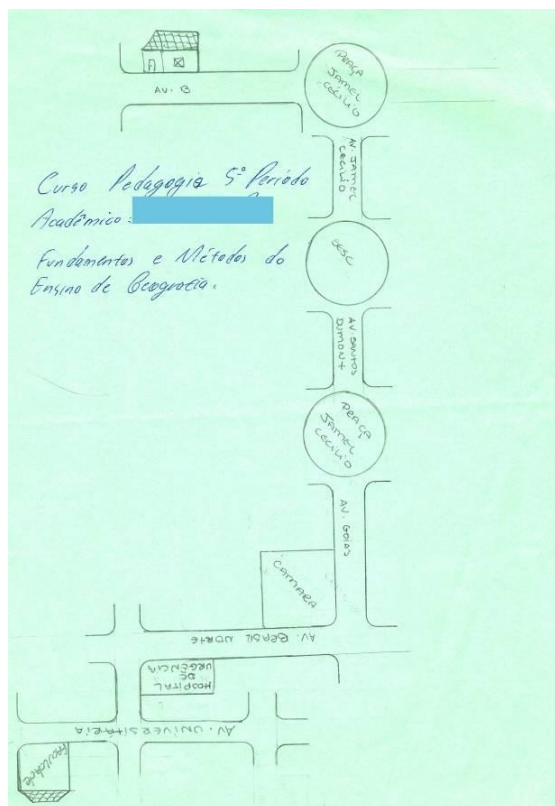 PRAÇA
JAMEL
CECÍLIO
AV. B
AV. JAMEL
CECÍLIO
Curso Pedagogia 5º Período
Acadêmico:
Fundamentos e Métodos do
Ensino de Geografia.
SESC
AV. SANTOS
DIMONT
PRAÇA
JAMEL
CECÍLIO
AV. GOIÁS
CAMARA
AV. BRASIL NORTE
HOSPITAL
DE
URGENCIA
AV. UNIVERSITÁRIA
FACULDADE